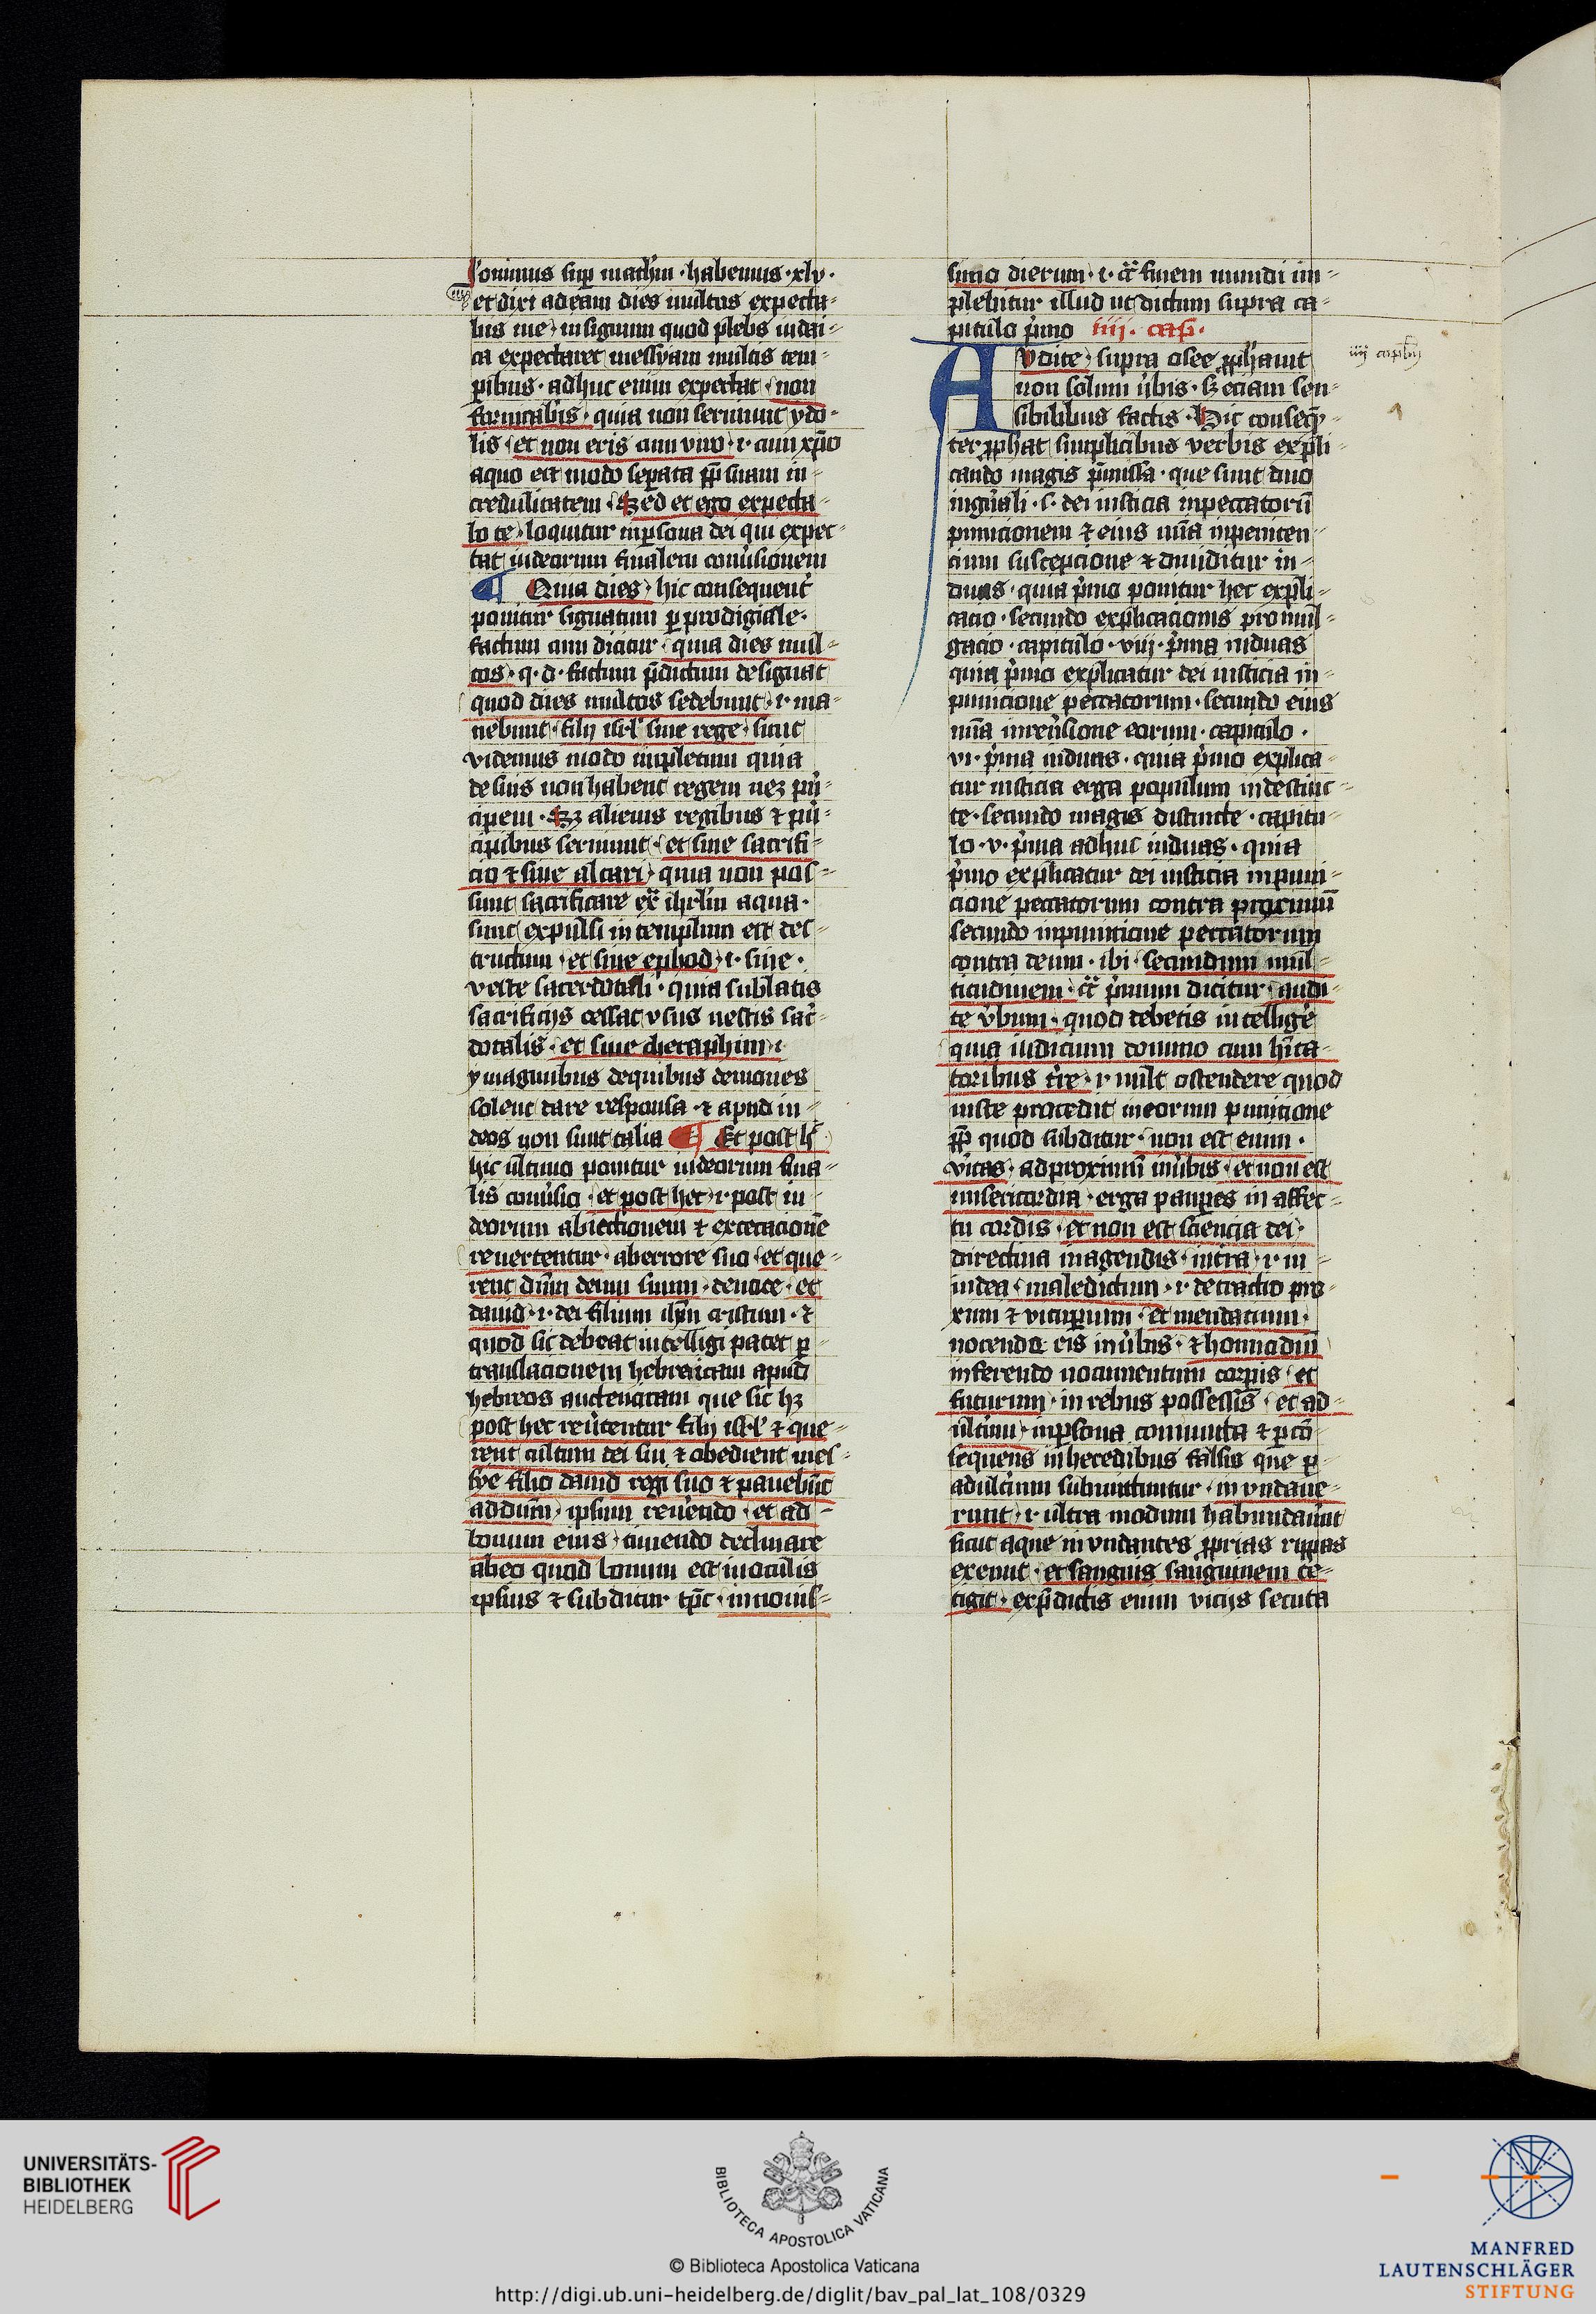 ioninus sup̄ mathm̄ · habemus · xlv ·
et dixi ad eam dies multos expecta-
bis me in signum quod plebs iudai-
ca expectaret messyam multis tem-
p̲ibus · adhuc enim expectat · non
fornicab̄is · quia non seruiunt ydo-
lis · et non eris cum viro · i · cum xp̄o
a quo est modo sep̲ata pp̄ suam in-
credulitatem · Sed et ego expecta-
bo te loquitur in p̲sona dei qui expec-
tat iudeorum finalem conu̓sionem
¶ Quia dies · hic consequent̓
ponitur signatum p̲ prodigiale ·
factum cum dicitur · quia dies mul-
tos · q · d · factum p̄dictum designat
quod dies multos sedebunt · i · ma-
nebunt · filij isr̄l sine rege · sicut
videmus modo impletum quia
de suis non habent regem nec pri̓n-
cipem · sꝫ alienis regibus ⁊ pri̓n-
cipibus seruiunt · et sine sacrifi-
cio ⁊ sine altari · quia non pos-
sunt sacrificare ext̄ ihrl̄m a qua ·
sunt expulsi in templum est des-
tructum · et sine ephod · i · sine ·
veste sacerdotali · quia sublatis
sacrificijs cessat vsus vestis sac̓-
dotalis · et sine theraphim · i
ymaginibus de quibus demones
solent dare responsa · ⁊ apud iu-
deos non sunt talia ¶ Et post h̄
hic ultimo ponitur iudeorum fina-
lis conu̓sio · et post hec · i · post iu-
deorum abiectionem ⁊ excecacionē
reuertentur · ab errore suo · et que-
rent dn̄m deum suum · deuote · et
dauid · i · dei filium ih̄m cristum · ⁊
quod sic debeat intelligi patet p̲
translacionem hebraicam apud
hebreos autenticam que sic hꝫ
post hec reu̓tentur filij isr̄l ⁊ que-
rent cultum dei sui ⁊ obedient mes-
sye filio dauid regi suo ⁊ pauebūt
ad dn̄m · ipsum reu̓endo · et ad
bonum eius · timendo declinare
ab eo quod bonum est in oculis
ipsius ⁊ subditur tp̄c · in nouis-
simo dierum · i · c̄c̄ finem mundi im-
plebitur illud ut dictum supra ca-
pitulo p̓mo iiij · cap ·
Avdite · supra osee pp̄hauit
non solum u̓bis · sꝫ eciam sen-
sibilibus factis · Hic conseq̄n-
ter pp̄hat simplicibus verbis expli-
cando magis p̄missa · que sunt duo
in gn̄ali · s · dei iusticia in peccatorū
punicionem ⁊ eius mīa in peniten-
cium suscepcione ⁊ diuiditur in-
duas · quia p̓mo ponitur hec expli-
cacio · secundo explicacionis promul-
gacio · capitulo · viij · p̓ma in duas
quia p̓mo explicatur dei iusticia in-
punicione peccatorum · secundo eius
mīa in reu̓sione eorum · capitulo ·
vi · p̓ma in duas · quia p̓mo explica-
tur iusticia erga populum indestinc-
te · secundo magis distincte · capitu-
lo · v · p̓ma adhuc in duas · quia
p̓mo explicatur dei iusticia in puni-
cione peccatorum contra proximū
secundo in punicione peccatorum
contra deum · ibi · secundum mul-
titudinem · c̄c̄ p̓mum dicitur · audi-
te u̓bum · quod debetis intellige̓
quia iudicium domino cum hīta-
toribus t̓re · i · uult ostendere quod
iuste procedit in eorum punitione
pp̄ quod subditur · non est enim ·
v̓itas · ad proximū in u̓bis · et non est
misericordia · erga paup̲es in affec-
tu cordis · et non est sciencia dei ·
directiua in agendis · in terra · i · in
iudea · maledictum · i · detractio pro-
xim ⁊ vitup̲ium · et mendacium ·
nocendo eis in u̓bis · ⁊ homicidiū
inferendo nocumentum corp̲is · et
furtum · in rebus possessis · et ad-
ult̓ium · in p̲sona coniuncta ⁊ p̲ cō-
sequens in heredibus falsis que p̲
adult̓ium subintrantur · in vndaue-
runt · i · ultra modum habundau̓nt
sicut aque in vndantes pp̲rias rippas
exeunt · et sanguis sanguinem te-
tigit · ex p̄dictis enim vicijs secuta
iiij cap̄lm
UNIVERSITÄTS-
BIBLIOTHEK
HEIDELBERG
BIBLIOTECA APOSTOLICA VATICANA
© Biblioteca Apostolica Vaticana
http://digi.ub.uni-heidelberg.de/diglit/bav_pal_lat_108/0329
MANFRED
LAUTENSCHLÄGER
STIFTUNG